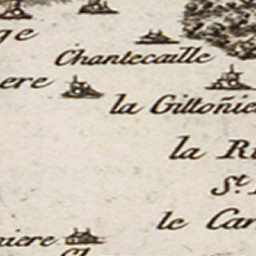 ge
Chantecaille
ere
la Gittoñie
la Ri
S.t
le Car
niere